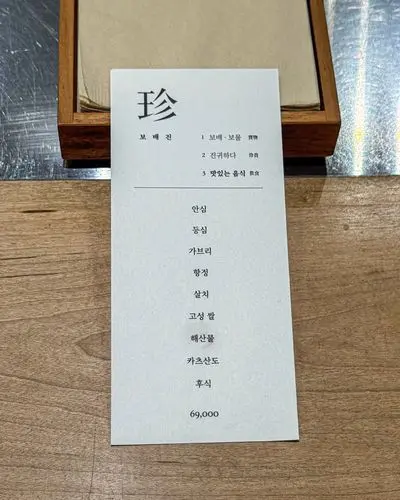 珍
보 배 진
1 보배 · 보물 寶物
2 진귀하다 珍貴
3 맛있는 음식 飮食
안심
등심
가브리
항정
살치
고성 쌀
해산물
카츠산도
후식
69,000